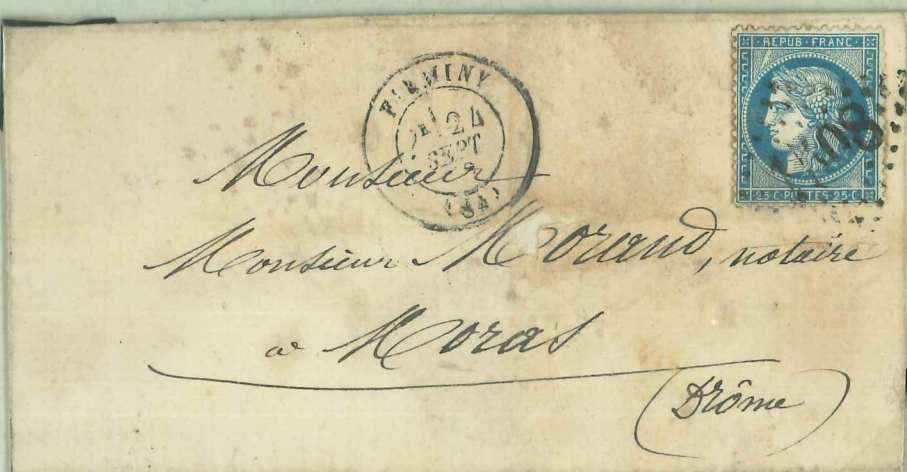 REPUB · FRANC ·
25 C · POSTES · 25 C
FIRMINY
24
SEPT
(84)
Monsieur
Monsieur Morand, notaire
à Moras
(Drôme)